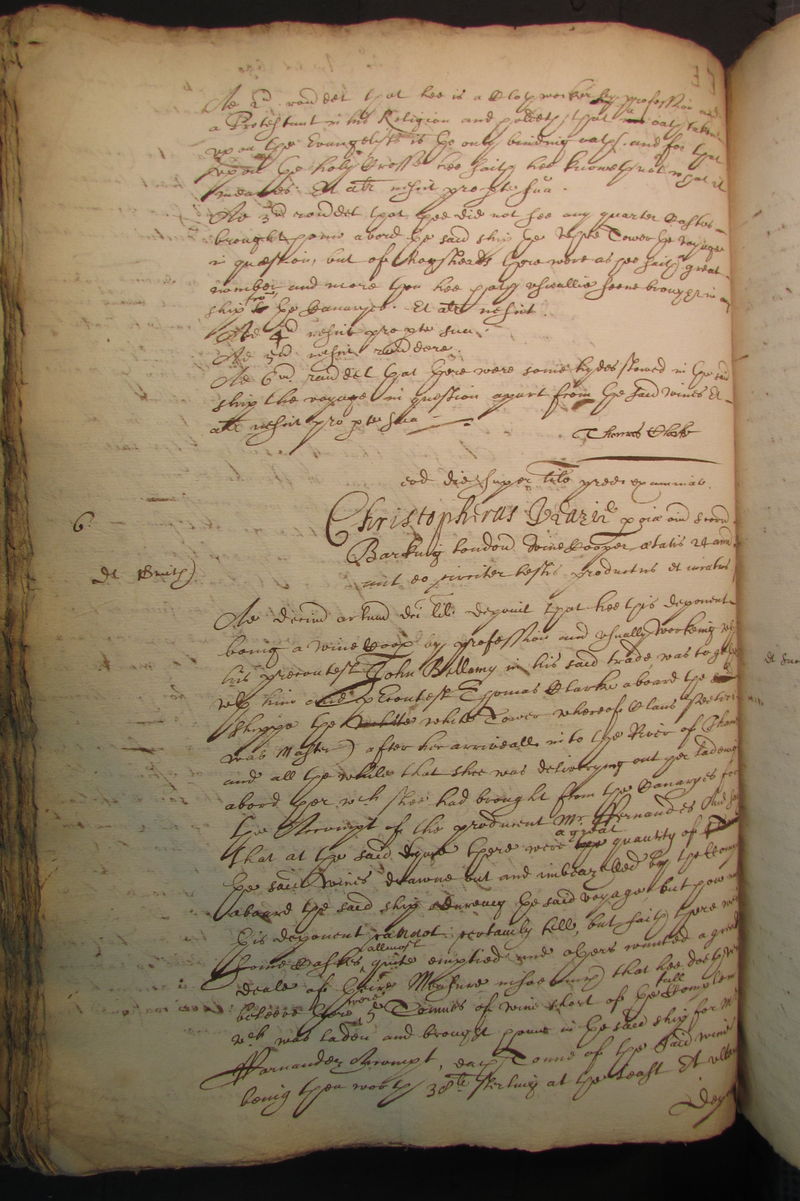 Ad 2d. rondet that hee is a Clothworker by profession and
a Protestant in his Religion and that oath taken
upon the Evangelists is the only binding oath. and for that
upon the holy Crosse hee saith hee knoweth not what it
meanes. Et alr nescit pro pte sua.
Ad 3d rondet that hee did not see any quarter Caskes
brought home abord the said ship the White Tower the voyage
in question, but of hogsheads there were as hee saith a great
number and more then hee hath usuallie seene brought in any
ship from the Canaryes. Et alr nescit.
Ad 4d nescit pro pte sua.
Ad 5d nescit rondere.
Ad 6d rondet that there were some hydes stowed in the said
ship the voyage in question apart from the said wines Et
alr nescit pro pte sua
Thomas Clarke
eod die super lilo pred examinat.
6.
Christopherus pochiæ omn sanct
Barking London Wine Cooper ætatis 24 ann
aut eo circiter testis productus et iuratus
dt Smith
Ad decimum artium dci lli. deponit that hee this deponent
being a wine Coop by profession and usually working with
his precontest John Bellamy in his said trade, was together
wth him and precontest Thomas Clarke aboard the
shippe the white Tower whereof Claus
was Master) after her arriveall in to the River of Thames
and all the while that shee was delivering out her ladeing
abord her wch shee had brought from the Canaryes for
the Accompt of the producent Mr. Fernandes And saith
that at the said tyme there were a great quantity of
the said wines drawne out and imbeazelled by the Company
aboard the said ship dureing the said voyage but how much
this deponent cannot certainly tell, but saith there were
some Caskes allmost quite emptied and others wanted a great
deale of their Measure insoemuch that hee doth
beleeve there were 5 Tonnes of wine short of the full Complem
wch was laden and brought home in the said ship for Mr
Fernandez Accompt, each Tonne of the said wine
being then worth 38li sterling at the least Et
Dep